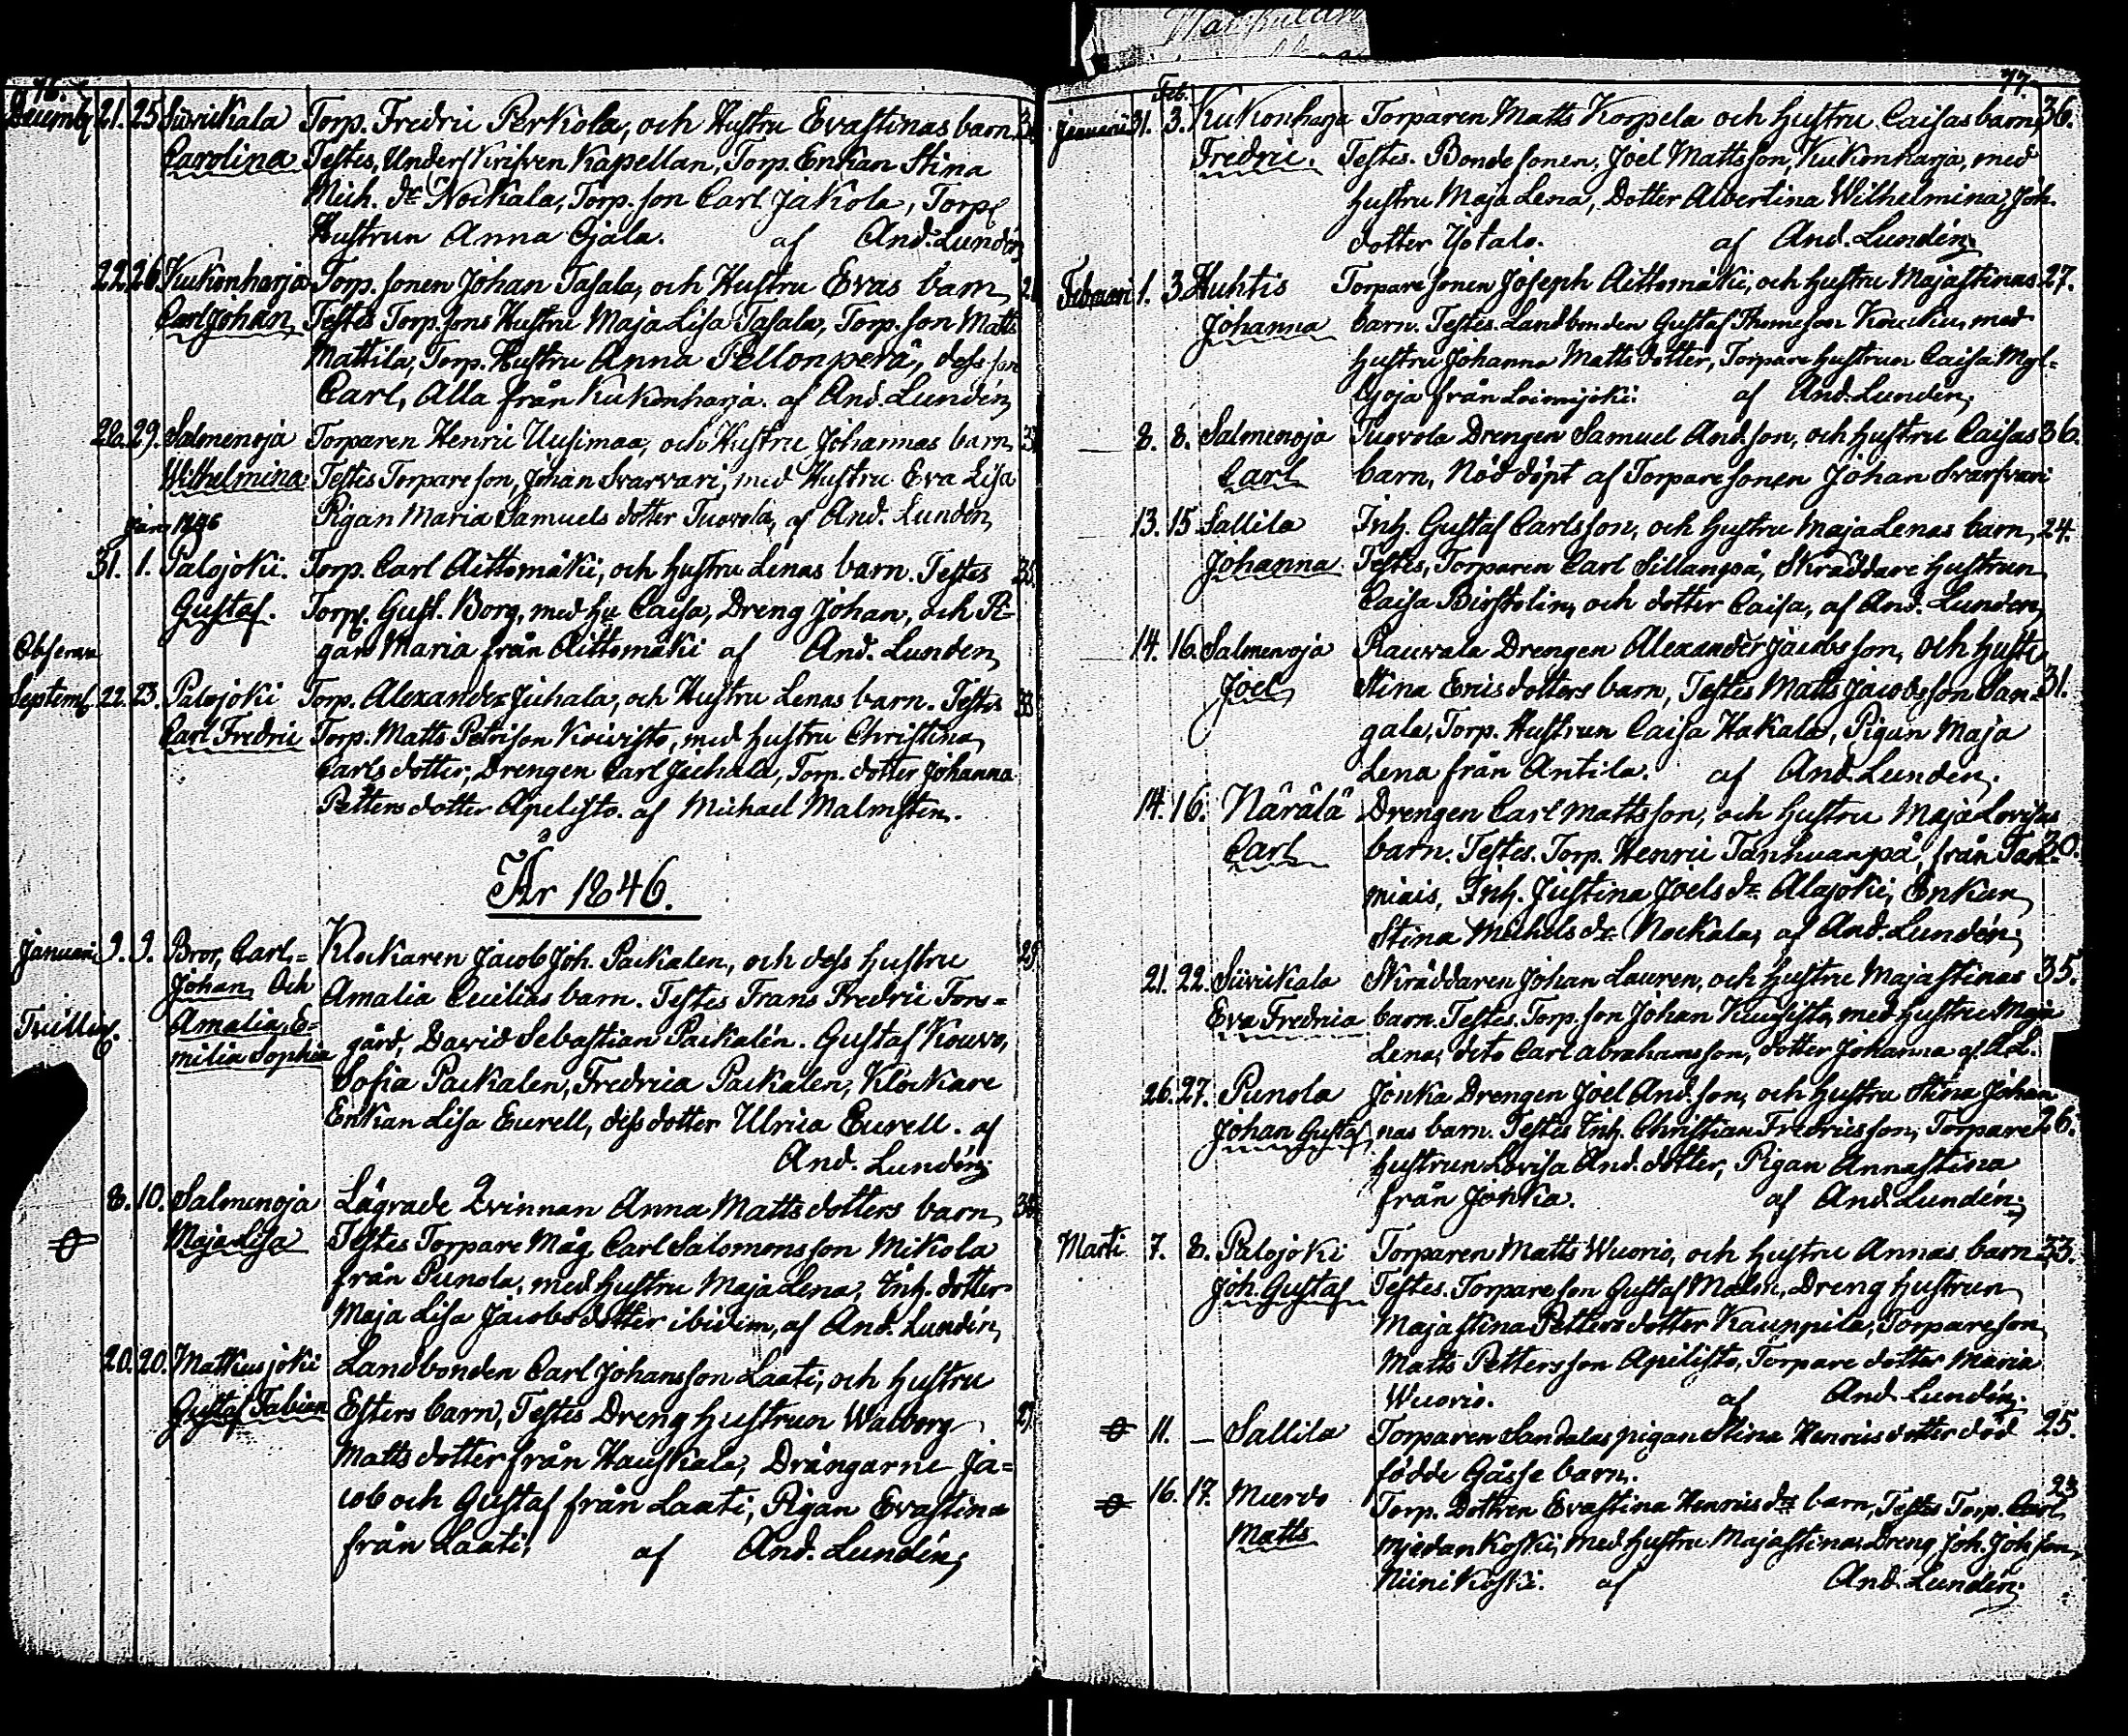 76.
Decemb 21. 25 Siirikala Torp. Fredric Perkola, och Hustru Evastinas barn
Carolina Testes, Underskrifven Kapellan, Torp. Enkan Stina
Mich. dr Nockala, Torp. son Carl Jakola, Torp.
Hustrun Anna Ojala. af And. Lundén,
22. 26. Kukonharja Torp. sonen Johan Tasala, och Hustru Evas barn,
Carl Johan, Testes Torp. sons Hustru Maja Lisa Tasala, Torp. son Matts
Mattila, Torp. Hustru Anna Pellonperä, dess son
Carl, Alla från Kukonharja. af And. Lundén,
22. 29. Salmenoja Torparen Henric Uusimaa, och Hustru Johannas barn,
Wilhelmina Testes Torpare son, Johan Svarvari, med Hustru Eva Lisa
Pigan Maria Samuels dotter Tuovola, af And. Lundén,
Jan. 1846
31. 1. Palojoki. Torp. Carl Aittomäki, och hustru Lenas barn. Testes 35.
Gustaf. Torp. Gust. Borg, med hu Caisa, Dreng Johan, och Pi-
gan Maria från Aittomäki af And. Lunden,
Observa
Septemb. 22. 23. Palojoki Torp. Alexander Juhala, och Hustru Lenas barn. Testes 33
Carl Fredric Torp. Matts Petrison Koivisto, med hustru Christina
Carls dotter, Drengen Carl Juhala, Torp. dotter Johanna
Petters dotter Apelisto. af Michael Malmsten.
År 1846.
Januari 9. 9. Bror, Carl,= Klockaren Jacob Joh. Packalen, och dess hustru 25
Johan Och Amalia Cecilias barn. Testes Frans Fredric Fors=
Trilling. Amalia, E= gård, David Sebastian Packalén. Gustaf Kouvo,
milia Sophia Sofia Packalen, Fredrica Packalen, Klockare
Enkan Lisa Eurell, dess dotter Ulrica Eurell. af
And. Lundén;
8. 10. Salmenoja Lägrade Qvinnan Anna Matts dotters barn,
Maja Lisa Testes Torpare Måg Carl Salomonsson Mikola
från Punola, med hustru Maja Lena, Inh. dotter
Maja Lisa Jacobs dotter ibidem, af And. Lundén,
20. 20. Matkusjoki Landbonden Carl Johansson Laati, och hustru
Gustaf Fabian Esters barn, Testes Dreng hustrun Walborg 27.
Matts dotter från Hauskala, Drängarne Ja=
cob och Gustaf från Laati, Pigan Evastina
från Laati, af And. Lundén;
77.
Feb.
Januari 31. 3. Kukonharja Torparen Matts Korpela och hustru Caisas barn, 36.
Fredric. Testes. Bonde sonen, Joel Mattsson, Kukonharja, med
hustru Maja Lena, Dotter Albertina Wilhelmina, Joh.
dotter Ylötalo. af And. Lundén;
Februari 1. 3. Huhtis Torpare sonen Joseph Aittomäki, och hustru Majastinas 27.
Johanna barn. Testes. Landbonden Gustaf Thomesson Koukku, med
hustru Johanna Matts dotter, Torpare hustrun Caisa Myl-
lyoja från Loimijoki. af And. Lundén,
8. 8. Salmenoja Tuovola Drengen Samuel And. son, och hustru Caisas 36.
Carl barn, Nöd döpt af Torpare sonen Johan Svarfvari
13. 15 Sallila Inh. Gustaf Carlsson, och hustru Maja Lenas barn, 24.
Johanna Testes, Torparen Carl Sillanpä, Skräddare hustrun
Caisa Birstolin, och dotter Caisa, af And. Lunden,
14. 16. Salmenoja Rauvala Drengen Alexander Jacobsson, och hustru
Joel Stina Erics dotters barn, Testes Matts Jacobsson San- 31.
gala, Torp. Hustrun Caisa Hakala, Pigan Maja
Lena från Antila. af And. Lundén.
14. 16. Närälä Drengen Carl Mattsson, och hustru Maja Lovisas
Carl barn. Testes. Torp. Henric Tanhuanpä, från Tam= 30.
miais, Inh. Justina Joels dr Alajoki, Enkan
Stina Michels dr Nockala, af And. Lundén;
21. 22. Siirikala Skräddaren Johan Lauren, och hustru Majastinas 35.
Eva Fredrica barn. Testes. Torp. son Johan Kuusisto, med hustru Maja
Lena, dito Carl Abrahamsson, dotter Johanna af A.L.
26. 27. Punola Jonka Drengen Joel And. son, och hustru Stina Johan
Johan Gustaf nas barn. Testes Inh. Christian Fredricsson, Torpare 26.
hustrun Lovisa And. dotter, Pigan Annastina
från Jonka. af And. Lundén;
Marti 7. 8. Palojoki Torparen Matts Wuorio, och hustru Annas barn, 33.
Joh. Gustaf Testes. Torpare son Gustaf Dreng hustrun
Majastina Petters dotter Kauppila, Torpare son,
Matts Pettersson Apilisto, Torpare dotter Maria
Wuorio. af And. Lundén;
11. — Sallila Torparen Sandalas pigan Stina Henrics dotter död 25.
födde Gåsse barn.
16. 17. Murdo Torp. Dottren Evastina Henrics dr barn, Testes Torp. Carl 23
Matts Myedankoski, med hustru Majastina, Dreng Joh. Joh son,
Niinikoski. af And. Lundén;